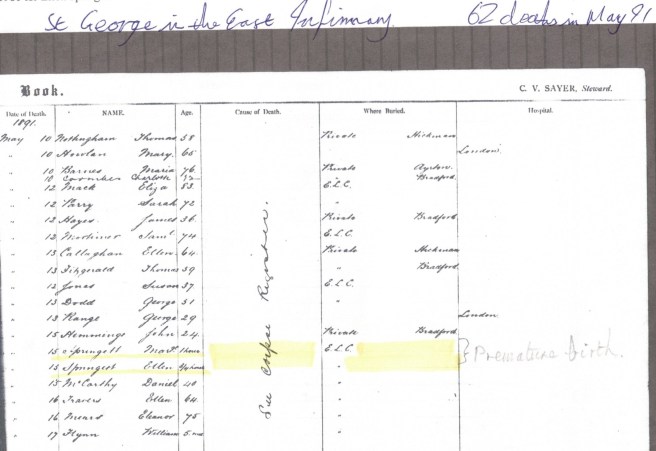 St. George in the East Infirmary. 62 deaths in May 91
Book. C. V. SAYER, Steward.
Date of Death. NAME. Age. Cause of Death. Where Buried. Hospital.
1891.
May 10 Nottingham Thomas 58 Private Hickman
" 10 Howlan Mary 65 London
" 10 Barnes Maria 76 Private Ayrton
10 Coombes Charlotte Bradford
" 12 Mack Eliza 83 E.L.C.
" 12 Parry Sarah 72 "
" 12 Hayes James 36 Private Bradford
" 12 Mortimer Saml. 74 E.L.C.
" 13 Callaghan Ellen 64 Private Hickman
" 13 Fitzgerald Thomas 39 " Bradford
" 13 Jonas Susan 37 E.L.C.
" 13 Dodd George 31 "
" 13 Range George 29 London
" 15 Hemmings John 24 Private Bradford
" 15 Springett 1 hour E.L.C. } Premature Birth.
" 15 Springett Ellen "
" 15 McCarthy Daniel 40 "
" 16 Travers Ellen 64 "
" 16 Mears Eleanor 75 "
" 17 Flynn William 5 ms "
See Corpse Register.